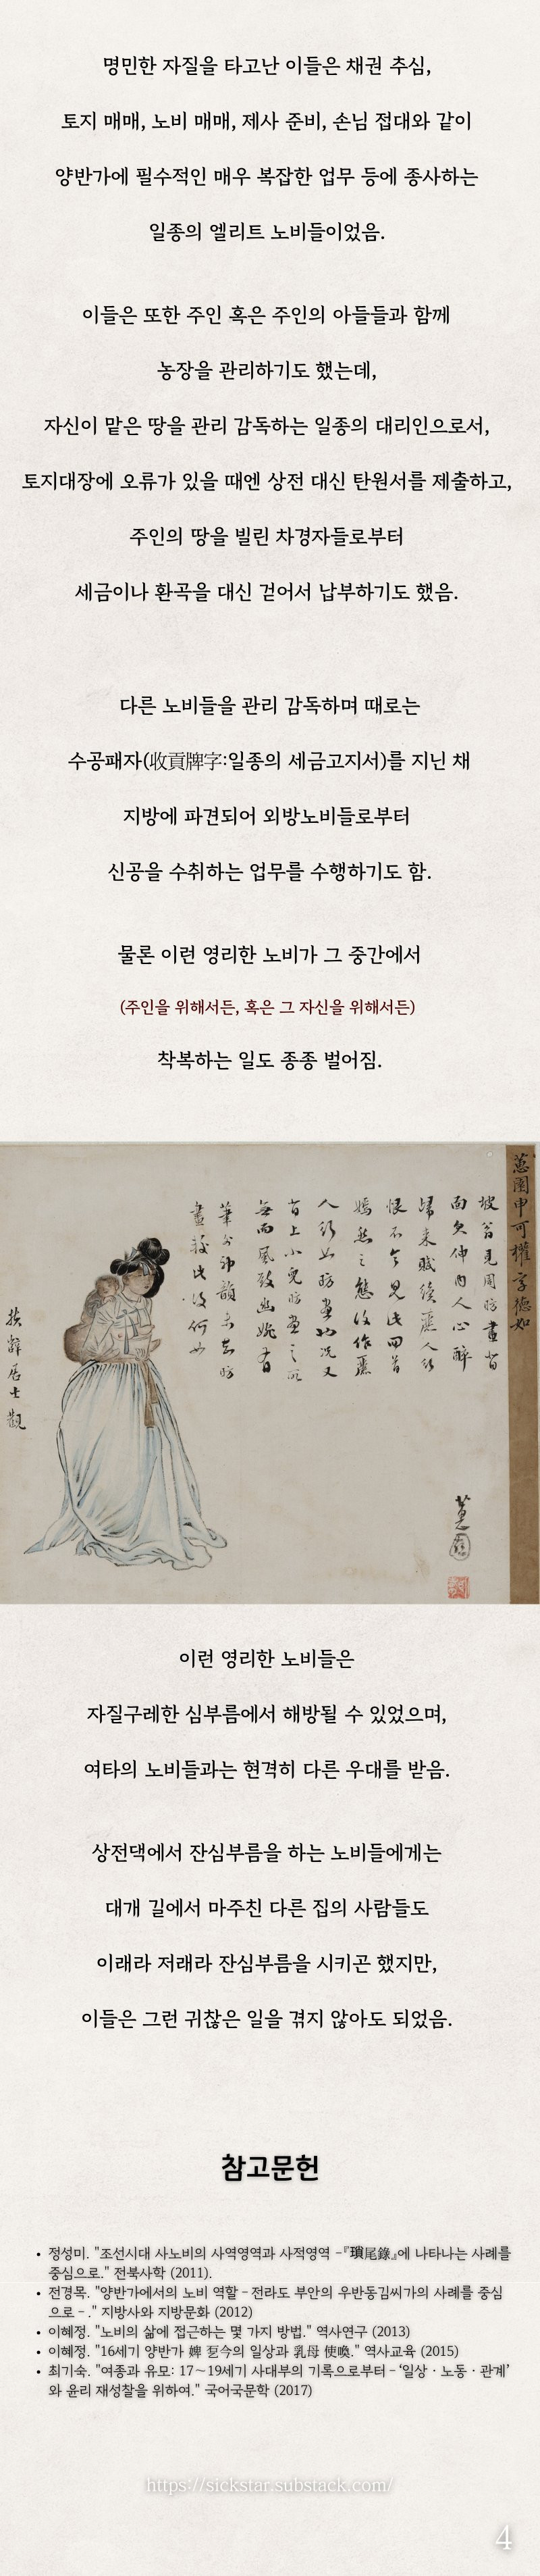 명민한 자질을 타고난 이들은 채권 추심,
토지 매매, 노비 매매, 제사 준비, 손님 접대와 같이
양반가에 필수적인 매우 복잡한 업무 등에 종사하는
일종의 엘리트 노비들이었음.
이들은 또한 주인 혹은 주인의 아들들과 함께
농장을 관리하기도 했는데,
자신이 맡은 땅을 관리 감독하는 일종의 대리인으로서,
토지대장에 오류가 있을 때엔 상전 대신 탄원서를 제출하고,
주인의 땅을 빌린 차경자들로부터
세금이나 환곡을 대신 걷어서 납부하기도 했음.
다른 노비들을 관리 감독하며 때로는
수공패자(收貢牌字:일종의 세금고지서)를 지닌 채
지방에 파견되어 외방노비들로부터
신공을 수취하는 업무를 수행하기도 함.
물론 이런 영리한 노비가 그 중간에서
(주인을 위해서든, 혹은 그 자신을 위해서든)
착복하는 일도 종종 벌어짐.
蕙園申可權字德如
坡翁見周昉畫背
面欠伸內人心醉
歸來賦續麗人行
恨不令見此回首
嫣然之態復作麗
人行如昉畫也況又
背上小兒昉畫之所
無而風致幽婉者
畫接此後何如
蕙園
이런 영리한 노비들은
자질구레한 심부름에서 해방될 수 있었으며,
여타의 노비들과는 현격히 다른 우대를 받음.
상전댁에서 잔심부름을 하는 노비들에게는
대개 길에서 마주친 다른 집의 사람들도
이래라 저래라 잔심부름을 시키곤 했지만,
이들은 그런 귀찮은 일을 겪지 않아도 되었음.
참고문헌
• 정성미. "조선시대 사노비의 사역영역과 사적영역 -『瑣尾錄』에 나타나는 사례를
중심으로." 전북사학 (2011).
• 전경목. "양반가에서의 노비 역할 - 전라도 부안의 우반동김씨가의 사례를 중심
으로 - ." 지방사와 지방문화 (2012)
• 이혜정. "노비의 삶에 접근하는 몇 가지 방법." 역사연구 (2013)
• 이혜정. "16세기 양반가 婢 㐎今의 일상과 乳母 使喚." 역사교육 (2015)
• 최기숙. "여종과 유모: 17~19세기 사대부의 기록으로부터 - ‘일상 · 노동 · 관계’
와 윤리 재성찰을 위하여." 국어국문학 (2017)
https://sickstar.substack.com/
4